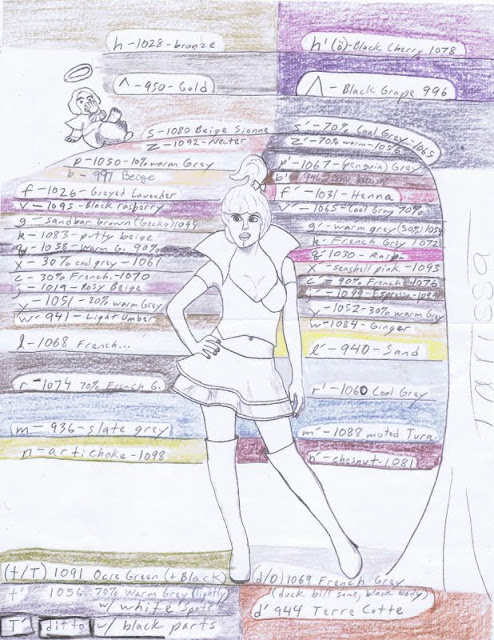 h-1028-bronze
h'(ö)-Black Cherry 1078
^-950-Gold
Λ-Black Grape 996
s-1080 Beige Sienne
s'-70% Cool Grey-1065
z-1092-Necter
z'-70% warm-1056
p-1050-10% warm Grey
p'-1067-(penguin) Grey
b-997 Beige
b'
f-1026-Greyed Lavender
f'-1031-Henna
v-1095-Black rasberry
v'-1065-Cool Gray 70%
g-sandbar brown (Gecko) 1099
g'-warm grey (50%) 1054
k-1083-putty beige
k'-French Grey 1072
q-1058-Warm G. 90%
q'-1030-Rasp
x-30% cool grey-1061
x-seashell pink-1093
c-30% French-1070
c'-90% French-1076
i-1019-Rosy Beige
Espresso-1099
y-1051-20% warm Grey
y-1052-30% warm Grey
w-941-Light Umber
w-1084-Ginger
l-1068 French...
l'-940-Sand
r-1074 70% French G.
r'-1060 Cool Grey
m-936-slate grey
m'-1088 muted Turq
n-artichoke-1098
n'-chesnut-1081
Larissa
(t/T) 1091 Ocre Green (+Black)
(d/D) 1069 French Grey
(duck bill some, black body)
t' 1056 70% Warm Grey (lightly)
w/ white spots
d' 944 Terre Cotte
T' ditto w/ black parts